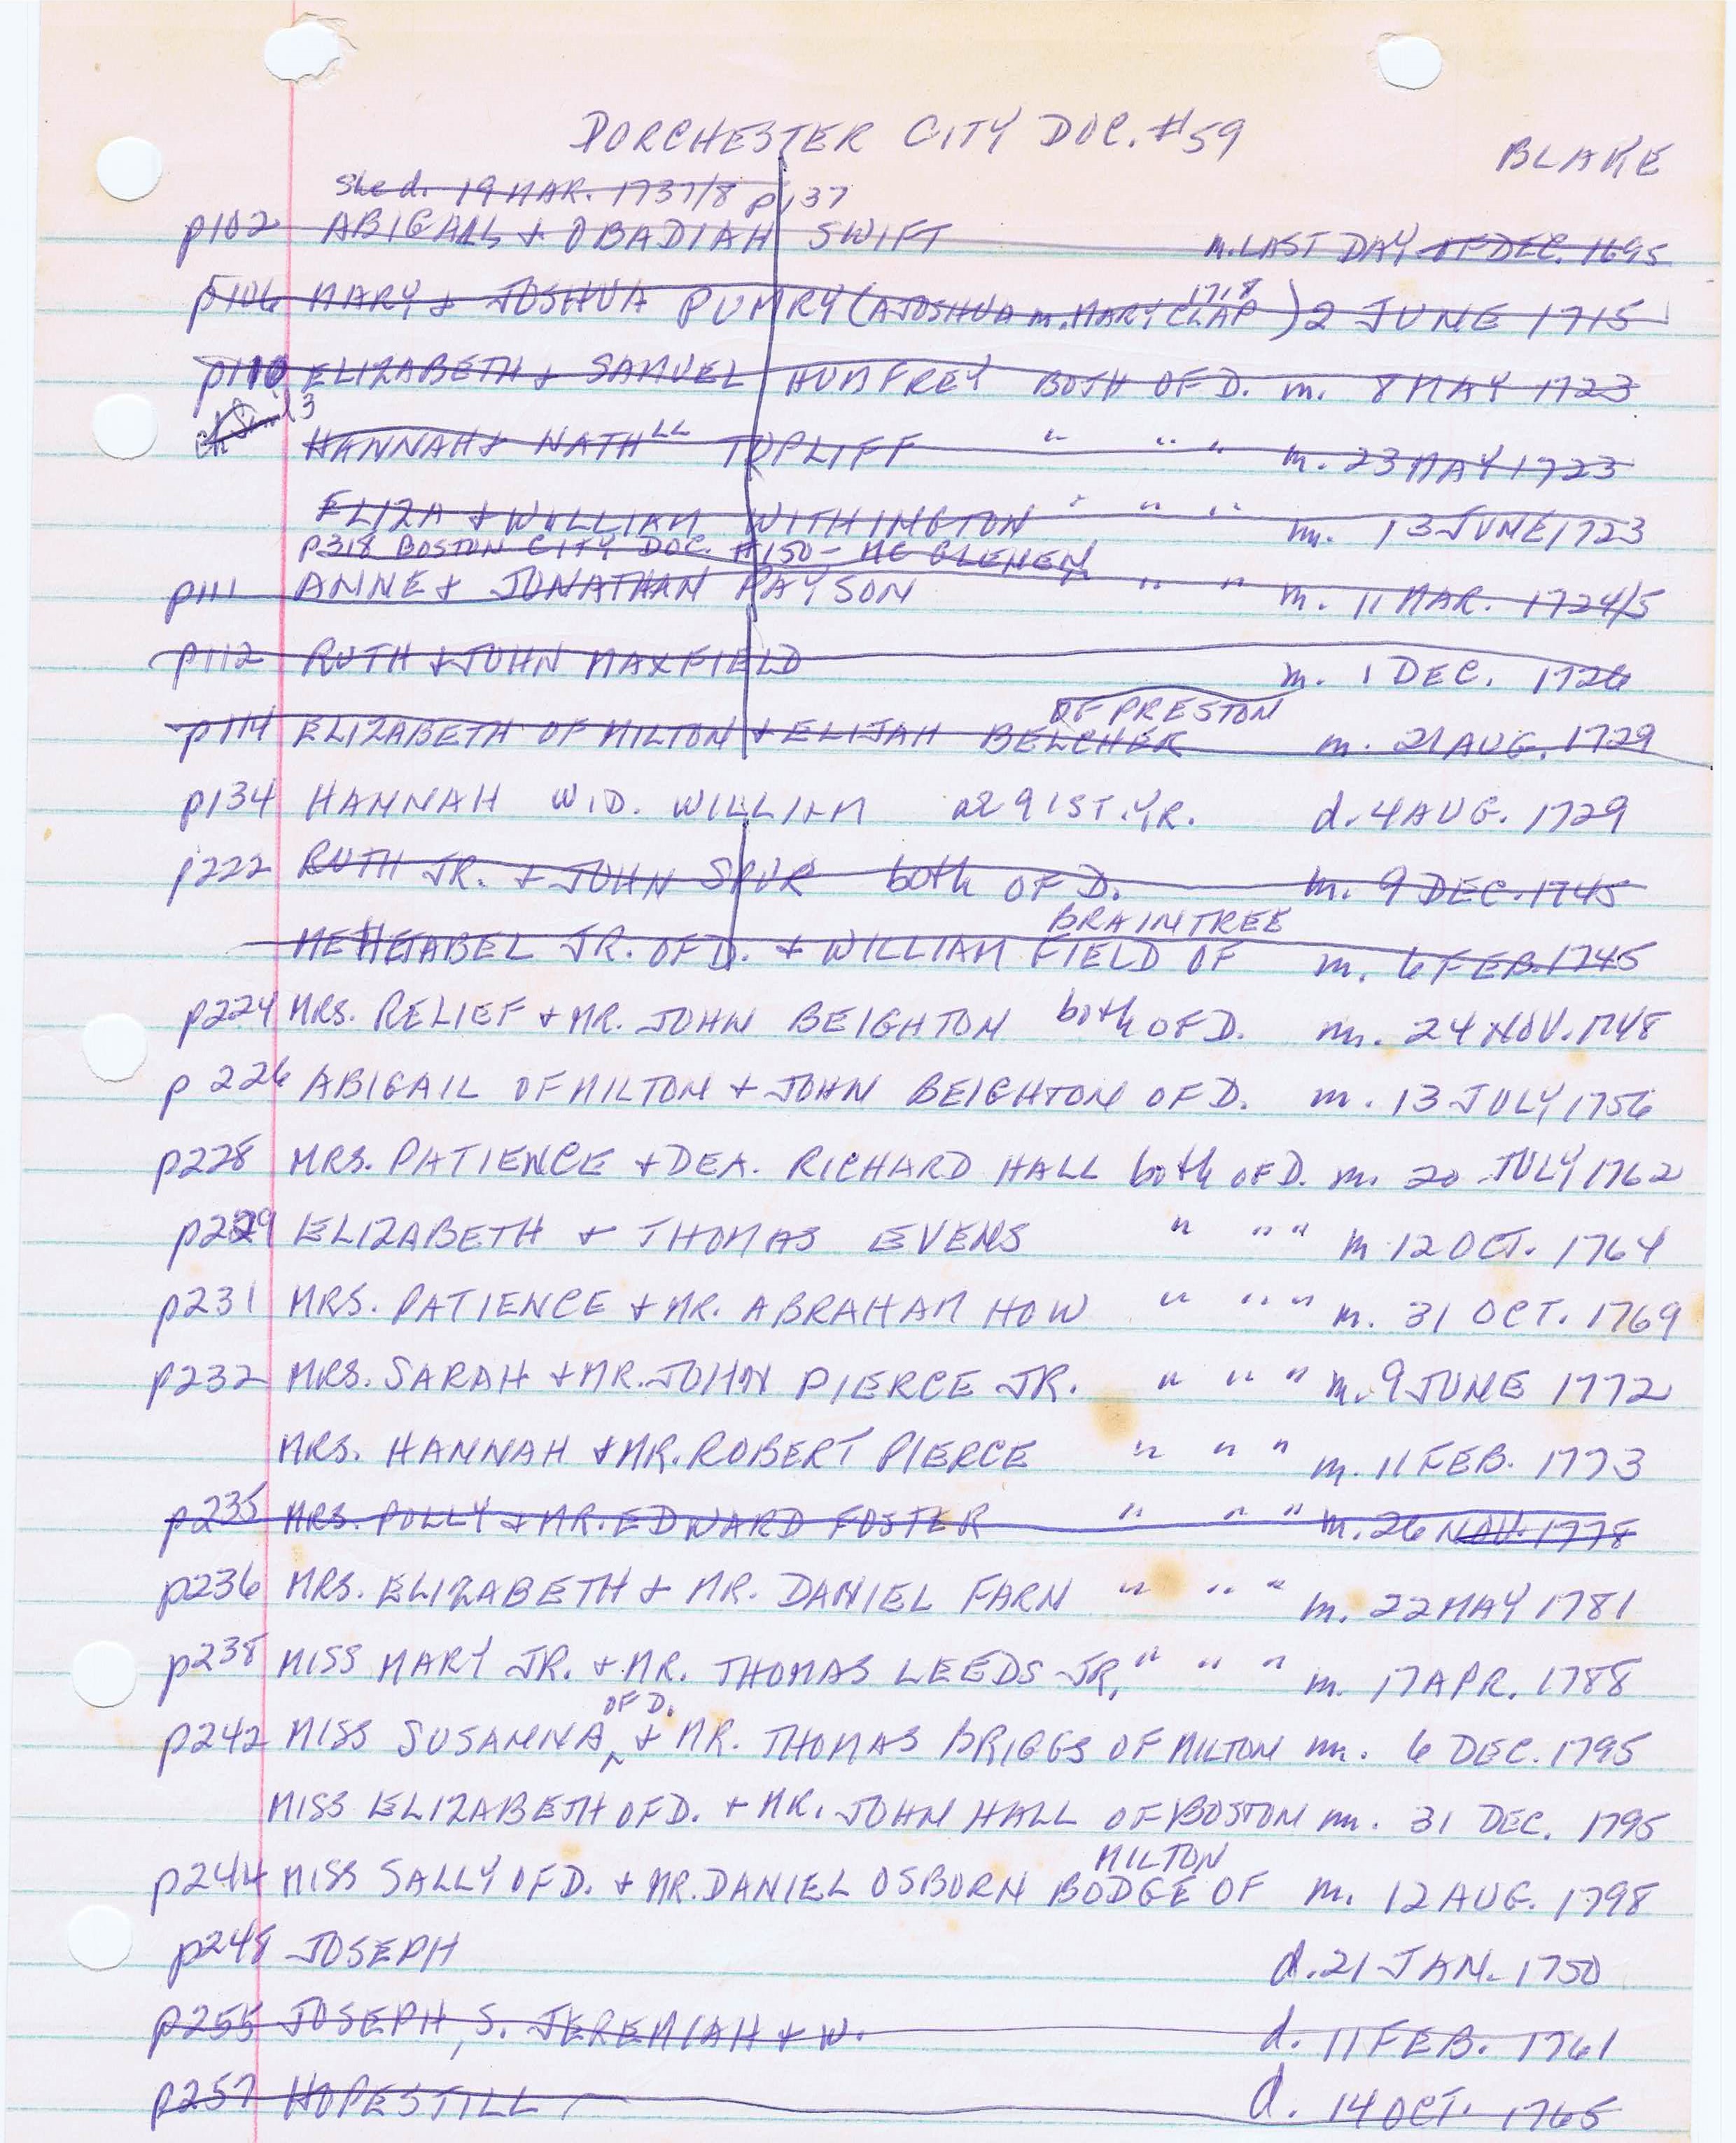 DORCHESTER CITY DOC. #59
BLAKE
She d. 19 MAR. 1737/8 p137
p102 ABIGAIL & OBADIAH SWIFT m. LAST DAY OF DEC. 1695
1718
p106 MARY & JOSHUA PUMRY (A JOSHUA m. MARY CLAP) 2 JUNE 1715
p110 ELIZABETH & SAMUEL HUMFREY BOTH OF D. m. 8 MAY 1723
HANNAH & NATHLL TOPLIFF " " " m. 23 MAY 1723
ELIZA & WILLIAM WITHINGTON " " " m. 13 JUNE 1723
P318 BOSTON CITY DOC. #150 - MC GLENEN
p111 ANNE & JONATHAN PAYSON " " " m. 11 MAR. 1724/5
p112 RUTH & JOHN MAXFIELD m. 1 DEC. 1726
OF PRESTON
p114 ELIZABETH OF MILTON & ELIJAH BELCHER m. 21 AUG. 1729
p134 HANNAH WID. WILLIAM ae 91ST. YR. d. 4 AUG. 1729
p222 RUTH JR. & JOHN SPUR both OF D. m. 9 DEC. 1745
BRAINTREE
MEHETABEL JR. OF D. & WILLIAM FIELD OF m. 6 FEB. 1745
p224 MRS. RELIEF & MR. JOHN BEIGHTON both OF D. m. 24 NOV. 1748
p226 ABIGAIL OF MILTON & JOHN BEIGHTON OF D. m. 13 JULY 1756
p228 MRS. PATIENCE & DEA. RICHARD HALL both OF D. m. 20 JULY 1762
p229 ELIZABETH & THOMAS EVENS " " " m. 12 OCT. 1764
p231 MRS. PATIENCE & MR. ABRAHAM HOW " " " m. 31 OCT. 1769
p232 MRS. SARAH & MR. JOHN PIERCE JR. " " " m. 9 JUNE 1772
MRS. HANNAH & MR. ROBERT PIERCE " " " m. 11 FEB. 1773
p235 MRS. POLLY & MR. EDWARD FOSTER " " " m. 26 NOV. 1778
p236 MRS. ELIZABETH & MR. DANIEL FARN " " " m. 22 MAY 1781
p238 MISS MARY JR. & MR. THOMAS LEEDS JR. " " " m. 17 APR. 1788
OF D.
p242 MISS SUSANNA & MR. THOMAS BRIGGS OF MILTON m. 6 DEC. 1795
MISS ELIZABETH OF D. & MR. JOHN HALL OF BOSTON m. 31 DEC. 1795
MILTON
p244 MISS SALLY OF D. & MR. DANIEL OSBURN BODGE OF m. 12 AUG. 1798
p248 JOSEPH d. 21 JAN. 1750
p255 JOSEPH, S. JEREMIAH & W. d. 11 FEB. 1761
p257 HOPESTILL d. 14 OCT. 1765